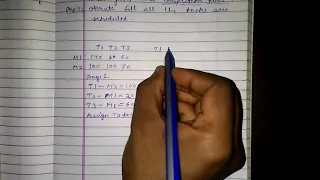 completion time
Step 4: iterate till all the tasks are
scheduled.
T1 T2 T3
T1
M1 140 20 60
M2 100 100 70
T1 - M2 = 100
T2 - M1 = 20
T3 - M1 = 60
Assign T2